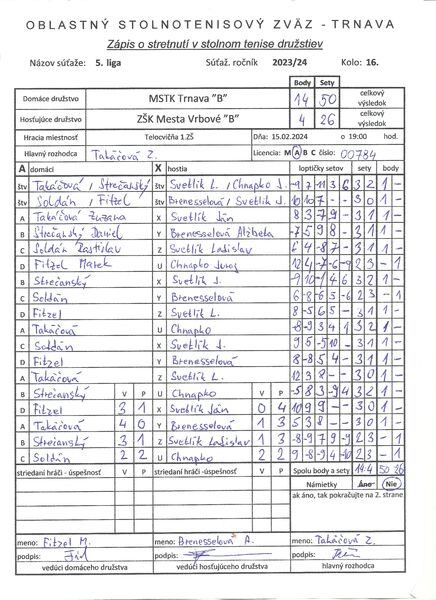 OBLASTNÝ STOLNOTENISOVÝ ZVÄZ - TRNAVA
Zápis o stretnutí v stolnom tenise družstiev
Názov súťaže: 5. liga Súťaž. ročník 2023/24 Kolo: 16.
Body Sety
Domáce družstvo MSTK Trnava "B" 14 50 celkový výsledok
Hosťujúce družstvo ZŠK Mesta Vrbové "B" 4 26 celkový výsledok
Hracia miestnosť Telocvičňa 1.ZŠ Dňa: 15.02.2024 o 19:00 hod.
Hlavný rozhodca Takáčová Z. Licencia: M A B C číslo: 00784
A domáci X hostia loptičky setov sety body
štv Takáčová / Strečanský štv Svetlík L. / Chnapko J. -9 7 11 -13 6 3 2 1 -
štv Soldán / Fitzel štv Brenesselová / Svetlík J. 10 10 7 - - 3 0 1 -
A Takáčová Zuzana X Svetlík Ján 8 3 7 9 - 3 1 1 -
B Strečanský Daniel Y Brenesselová Alžbeta -7 5 9 8 - 3 1 1 -
C Soldán Rastislav Z Svetlík Ladislav 6 4 -8 7 - 3 1 1 -
D Fitzel Marek U Chnapko Juraj 12 4 -7 -6 -9 2 3 - 1
B Strečanský X Svetlík J. -9 10 -14 6 6 3 2 1 -
C Soldán Y Brenesselová 6 -8 6 -5 -6 2 3 - 1
D Fitzel Z Svetlík L. 8 -5 6 5 - 3 1 1 -
A Takáčová U Chnapko 8 -9 3 4 - 3 1 1 -
C Soldán X Svetlík J. 9 5 -5 10 - 3 1 1 -
D Fitzel Y Brenesselová 8 -8 5 4 - 3 1 1 -
A Takáčová Z Svetlík L. 12 3 8 - - 3 0 1 -
B Strečanský V P U Chnapko V P -5 8 3 -9 4 3 2 1 -
D Fitzel 3 1 X Svetlík Ján 0 4 10 9 9 - - 3 0 1 -
A Takáčová 4 0 Y Brenesselová 1 3 5 3 8 - - 3 0 1 -
B Strečanský 3 1 Z Svetlík Ladislav 1 3 -8 -9 7 9 -9 2 3 - 1
C Soldán 2 2 U Chnapko 2 2 9 -8 9 -4 -10 2 3 - 1
striedaní hráči - úspešnosť V P striedaní hráči -úspešnosť V P Spolu body a sety 14:4 50 26
Námietky Áno- Nie
ak áno, tak pokračujte na 2. strane
meno: Fitzel M. meno: Brenesselová A. meno: Takáčová Z.
podpis: podpis: podpis:
vedúci domáceho družstva vedúci hosťujúceho družstva hlavný rozhodca